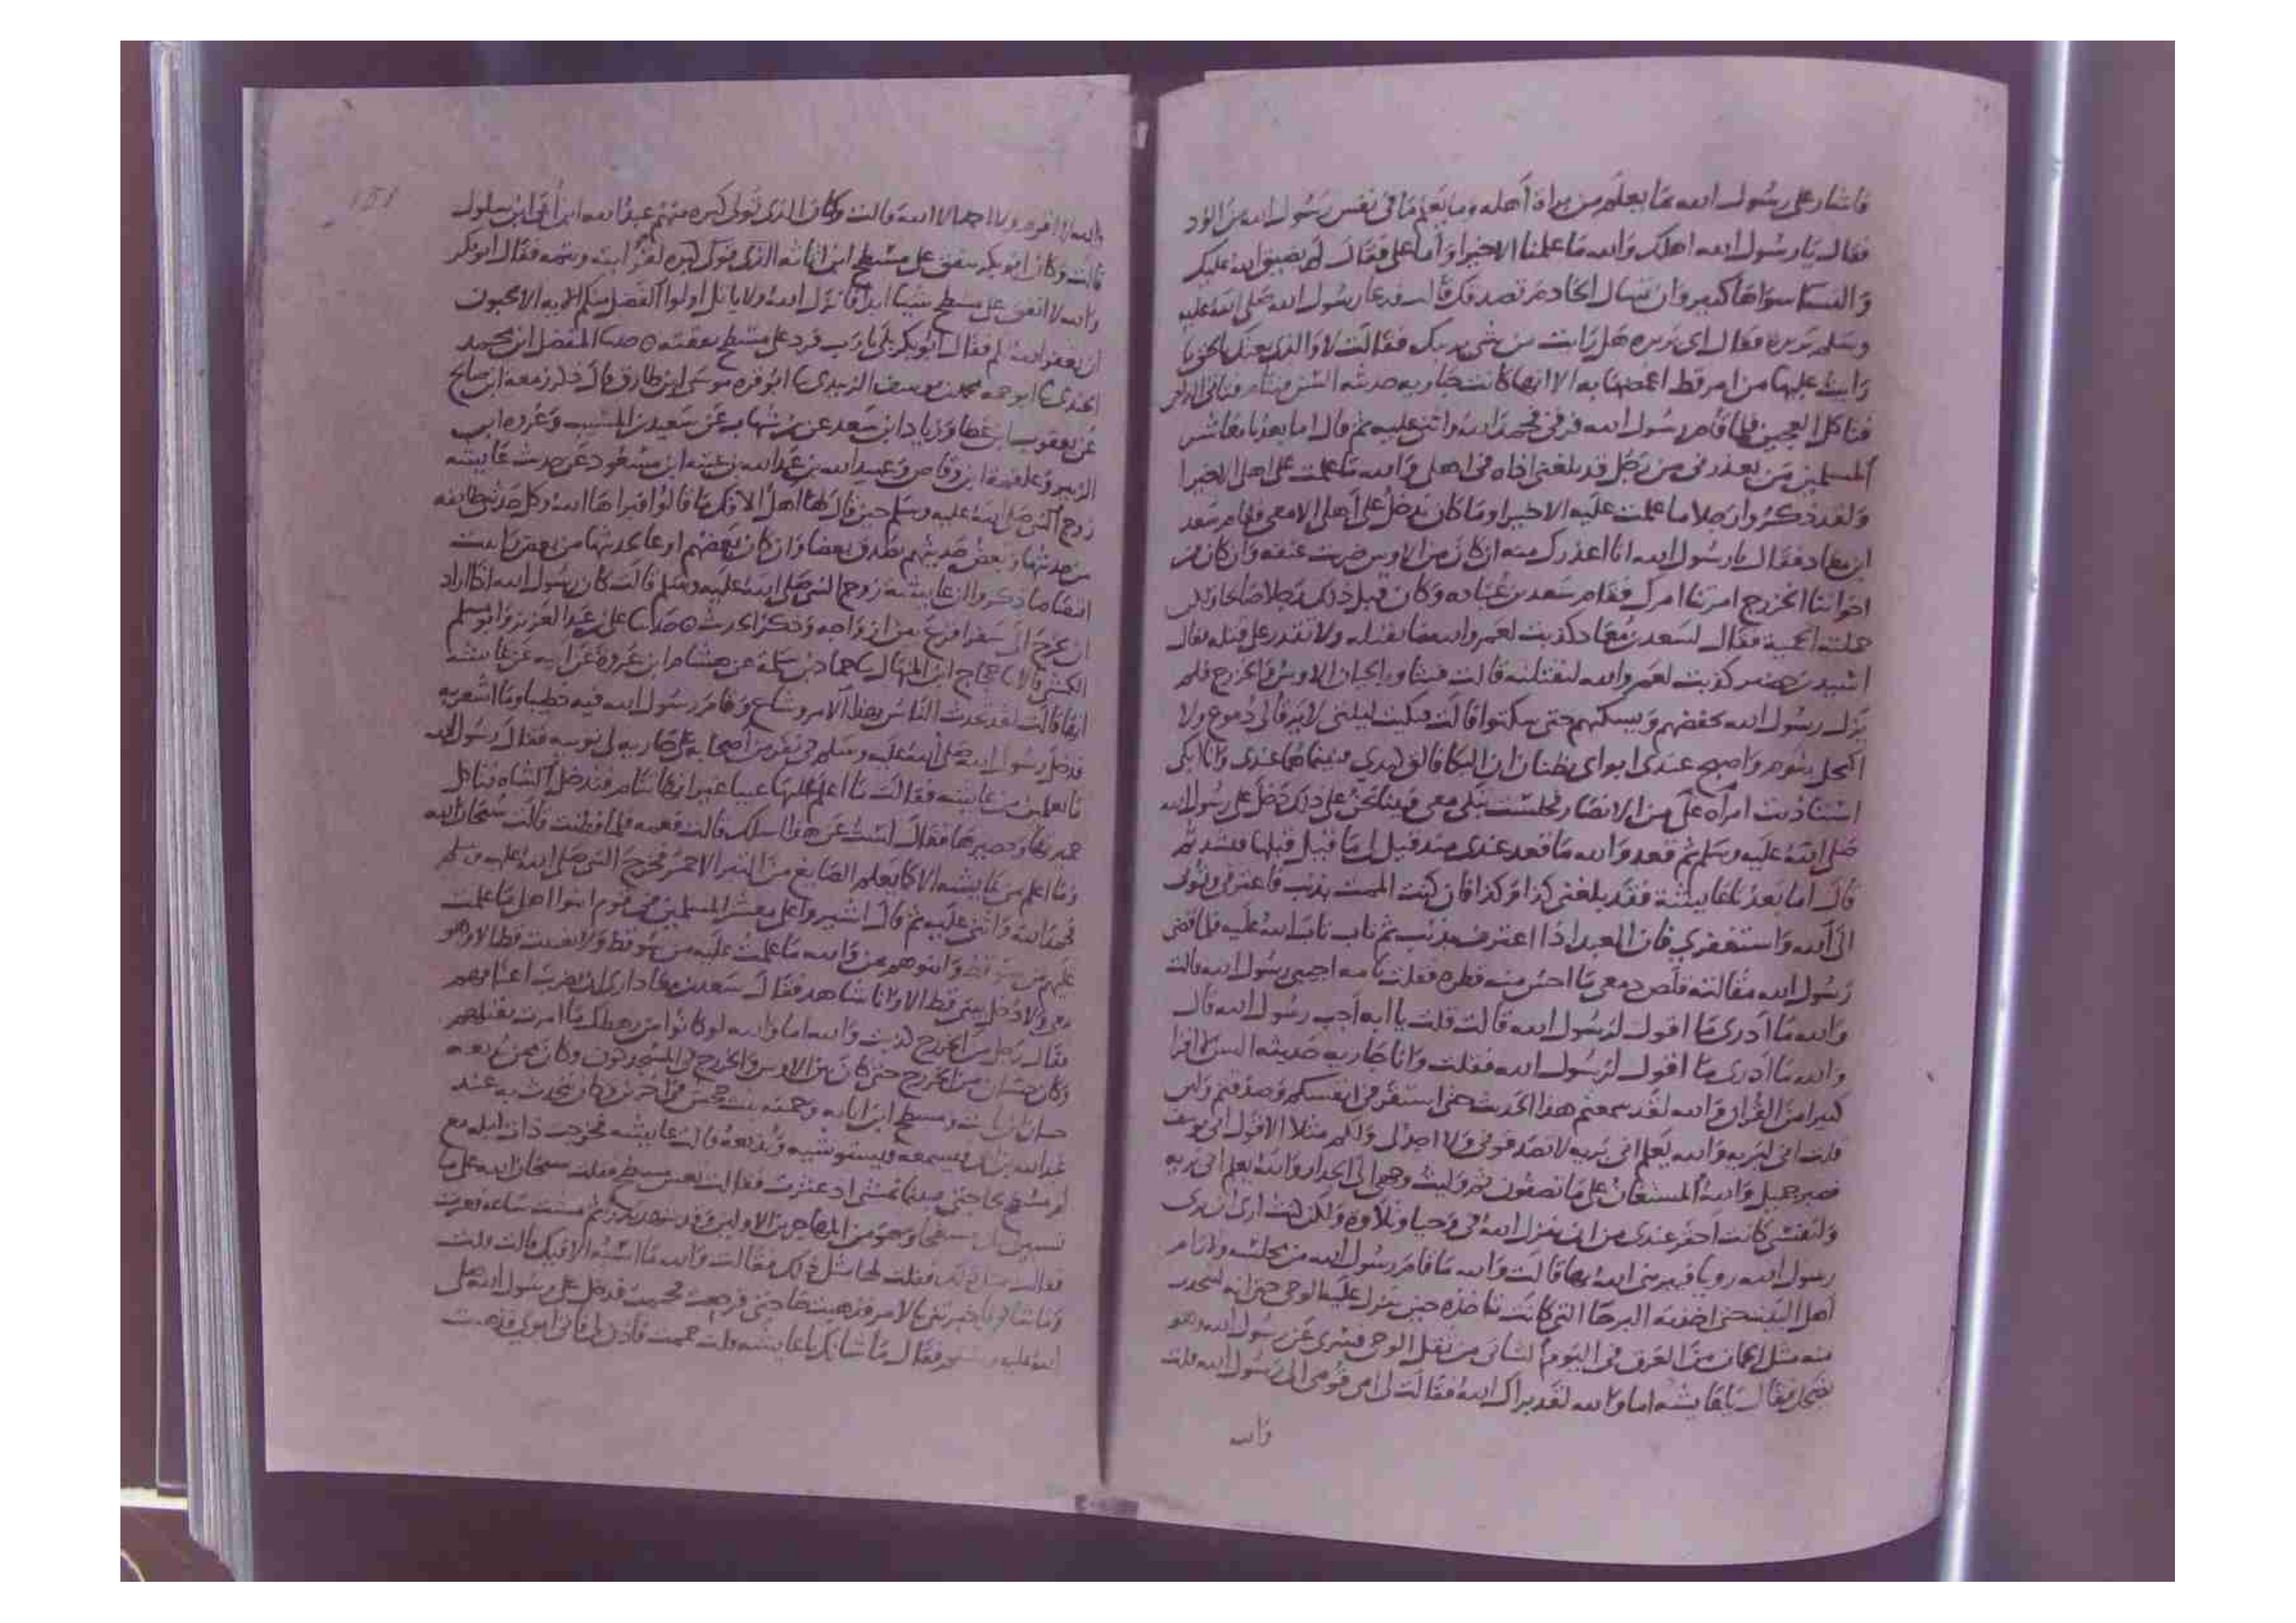 فاشار على رسول الله بما يعلم من براة أهله وما يعلم ما في نفس رسول الله من الود
فقال يا رسول الله اهلك والله ما علمنا الا خيرا واما علي فقال لم يضيق الله عليك
والنسا سواها كثير وان تسال الخادم تصدقك قالت فدعا رسول الله صلى الله عليه
وسلم بريره فقال اى بريره هل رايت من شي يريبك فقالت لا والذي بعثك بالحق ما
رايت عليها من امر قط اغمصها به الا انها كانت جاريه حديثه السن فتنام فياتي الداجن
فياكل العجين فلما قام رسول الله في فحمد الله واثنى عليه ثم قال اما بعد يا معاشر
المسلمين من يعذرني من رجل قد بلغني اذاه في اهلي والله ما علمت على اهلي الا خيرا
ولقد ذكروا رجلا ما علمت عليه الا خيرا وما كان يدخل على أهلي الا معي فقام سعد
ابن معاد فقال يا رسول الله انا اعذرك منه ان كان من الاوس ضربت عنقه وان كان من
اخواننا الخزرج امرتنا امرك فقام سعد بن عباده وكان قبل ذلك رجلا صالحا ولكن
حملته الحمية فقال لسعد بن معاد كذبت لعمر والله ما تقتله ولا تقدر على قتله فقال
اسيد بن حضير كذبت لعمر والله لنقتلنه قالت فتثاور الحيان الاوس والخزرج فلم
يزل رسول الله يخفضهم ويسكنهم حتى سكتوا قالت فبكيت ليلتي لا يرقا لي دموع ولا
اكتحل بنوم واصبح عندى ابواى يظنان ان البكا فالق كبدي فبينما هما عندى وانا ابكى
استاذنت امراه علي من الانصار فجلست تبكي معي فبينا نحن على ذلك دخل على رسول الله
صلى الله عليه وسلم ثم قعد والله ما قعد عندى منذ قيل لي ما قيل قبلها فتشهد ثم
قال اما بعد يا عايشة فقد بلغني كذا وكذا فان كنت الممت بذنب فاعترفي وتوبى
الى الله واستغفري فان العبد اذا اعترف بذنب ثم تاب تاب الله عليه فلما قضى
رسول الله مقالته قلص دمعي ما احس منه قطره فقلت يا ابه اجيبي رسول الله قالت
والله ما أدرى ما اقول لرسول الله قالت قلت يا ابه أجب رسول الله قال
والله ما أدرى ما اقول لرسول الله فقلت وانا جاريه حديثه السن لا اقرا
كثيرا من القران والله لقد سمعتم هذا الحديث حتى استقر في انفسكم وصدقتم ولئن
قلت اني لبريه والله يعلم انى بريه لا تصدقوني ولا اجد لى ولكم مثلا الا قول ابي يوسف
فصبر جميل والله المستعان على ما تصفون ثم وليت وجهي الى الجدار والله يعلم اني بريه
ولنفسي كانت احقر عندى من ان ينزل الله في وحيا وتلاوة ولكن كنت ارى ان يرى
رسول الله رويا فيبرئني الله بها قالت والله ما قام رسول الله من مجلسه ولا رام
أهل البيت حتى اخذته البرحا التي كانت تاخذه حين ينزل عليه الوحى حتى انه ليتحدر
منه مثل الجمان من العرق في اليوم الشاتي من ثقل الوحي فسري عن رسول الله وهو
يضحك فقال يا عايشه اما والله لقد براك الله فقالت لي امي قومي الى رسول الله قلت
والله
والله لا اقوم ولا احمد الا الله قالت وكان الذي تولى كبره منهم عبد الله ابن أبي ابن سلول
قالت وكان ابو بكر ينفق على مسطح ابن اثاثه الذي تولى كبره لقرابته ويتمه فقال ابو بكر
والله لا انفق على مسطح شيئا ابدا فانزل الله ولا ياتل اولوا الفضل منكم الايه الا تحبون
أن يغفر الله لكم فقال أبو بكر بلى يا رب فرد على مسطح نفقته ه حدثنا المفضل ابن محمد
الجندي ثنا ابو حمه محمد بن يوسف الزبيدي ثنا ابو قره موسى ابن طارق قال ذكر زمعه ابن صالح
عن يعقوب ابن عطا وزياد ابن سعد عن بن شهاب عن سعيد بن المسيب وعروه ابن
الزبير وعلقمة ابن وقاص وعبيد الله بن عبد الله بن عتبه ابن مسعود عن حديث عايشه
زوج النبي صلى الله عليه وسلم حين قال لها أهل الافك ما قالوا فبراها الله وكل حدثني طايفه
من حديثها وبعض حديثهم يصدق بعضا وان كان بعضهم اوعا لحديثها من بعض
ايضا ما ذكروا ان عايشة زوج النبي صلى الله عليه وسلم قالت كان رسول الله اذا اراد
ان يخرج الى سفر اقرع بين ازواجه وذكر الحديث ه حدثنا علي بن عبد العزيز وابو مسلم
الكشي قالا ثنا حجاج ابن المنهال ثنا حماد بن سلمة عن هشام ابن عروة عن ابيه عن عايشه
انها قالت لقد تحدث الناس بهذا الامر وشاع وقام رسول الله فيه خطيبا وما اشعر به
فدخل رسول الله صلى الله عليه وسلم في نفر من أصحابه على جاريه لي نوبيه فقال رسول الله
ما تعلمين من عايشه فقالت ما اعلم عليها عيبا غير انها تنام فتدخل الشاه فتاكل
خميرها وحصيرها فقال لست عن هذا اسلك قالت فعمه فلما فطنت قالت سبحان الله
وما اعلم من عايشه الا كما يعلم الصايغ من التبر الاحمر فخرج النبي صلى الله عليه وسلم
فحمد الله واثنى عليه ثم قال اشيروا علي معشر المسلمين في قوم ابنوا اهلي ما علمت
عليهم من سو قط وابنوهم بمن والله ما علمت عليه من سو قط ولا غبت قط الا وهو
معي ولا دخل بيتي قط الا وانا شاهد فقال سعد بن معاد ارى ان تضرب اعناقهم
فقال رجل من الخزرج كذبت والله اما والله لو كانوا من رهطك ما امرت بقتلهم
وكان حسان من الخزرج حتى كان بين الاوس والخزرج في المسجد كون وكان ممن
حسان ابن ثابت ومسطح ابن اثاثه وحمنه بنت جحش في اخرين وكان يحدث به عند
عبد الله بن ابي فيسمعه ويستوشيه ويذيعه قالت عايشه فخرجت ذات ليله مع
ام مسطح لحاجتي فبينما تمشي اذ عثرت فقالت تعس مسطح فقلت سبحان الله على ما
تسبين مسطحا وهو من المهاجرين الاولين وقد شهد بدرا ثم مشت ساعه فعثرت
فقالت مثل ذلك فقلت لها مثل ذلك فقالت والله ما اسبه الا فيك قالت قلت
وما شاني فاخبرتني بالامر فذهبت حاجتي فرجعت فحممت فدخل علي رسول الله صلى
الله عليه وسلم فقال ما شانك يا عايشه قلت حممت فاذن لي اتي ابوي فذهبت